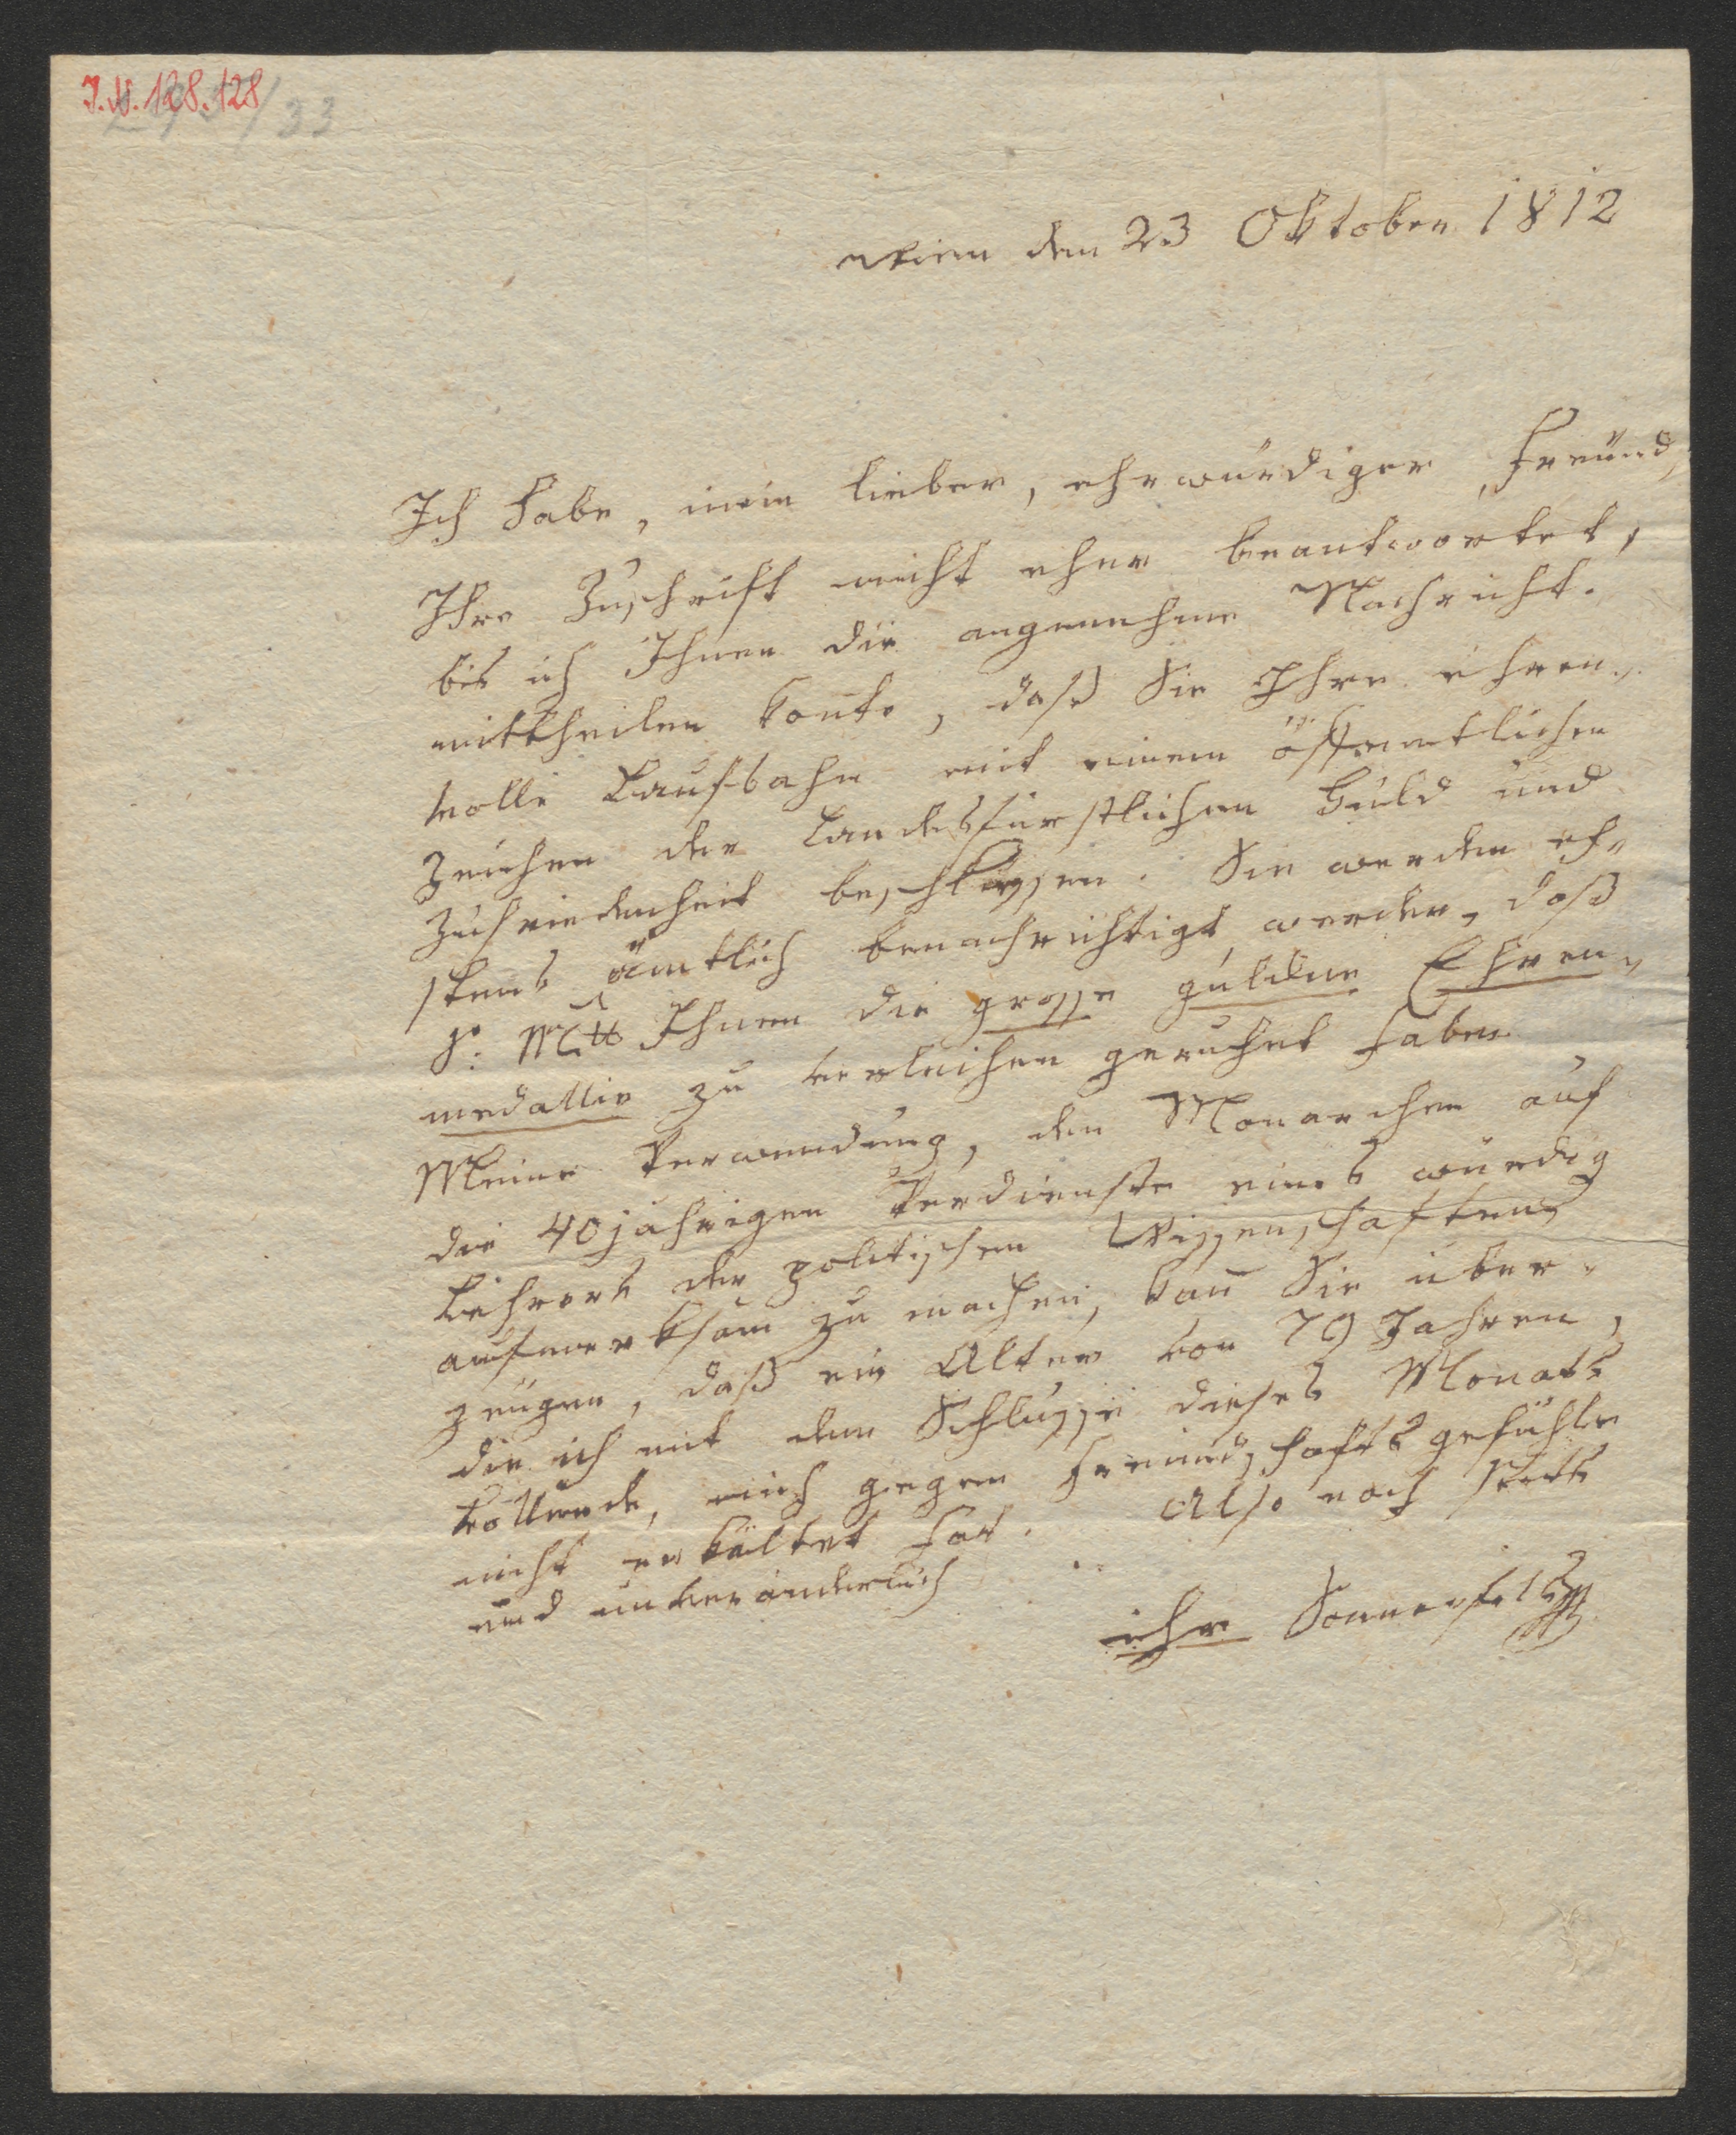 I.N. 128.128
/33
Wien den 23 Oktober 1812
Ich habe, mein lieber, ehrwürdiger Freund,
Ihre Zuschrift nicht eher beantwortet,
bis ich Ihnen die angenehme Nachricht.
mittheilen konte, daß Sie Ihre ehren-
volle Laufbahn mit einem öffentlichen
Zeichen der landesfürstlichen Huld und
Zufriedenheit beschlüssen. Sie werden eh-
stens ämtlich benachrichtigt werden, daß
Sr: Mtt Ihnen die grosse guldne Ehren-
medallie zu verleihen geruhet haben.
Meine Verwendung, den Monarchen auf
die 40jahrigen Verdienste eines würdig
Lehrers der politischen Wissenschaften
aufmerksam zu machen, kan̄ Sie über-
zeugen, daß ein Alter von 79 Jahren,
die ich mit dem Schlusse dieses Monats
vollende, mich gegen Freundschaftsgefühle
nicht erkältet hat. Also noch stets
und unveränderlich
ihr Sonnenfels